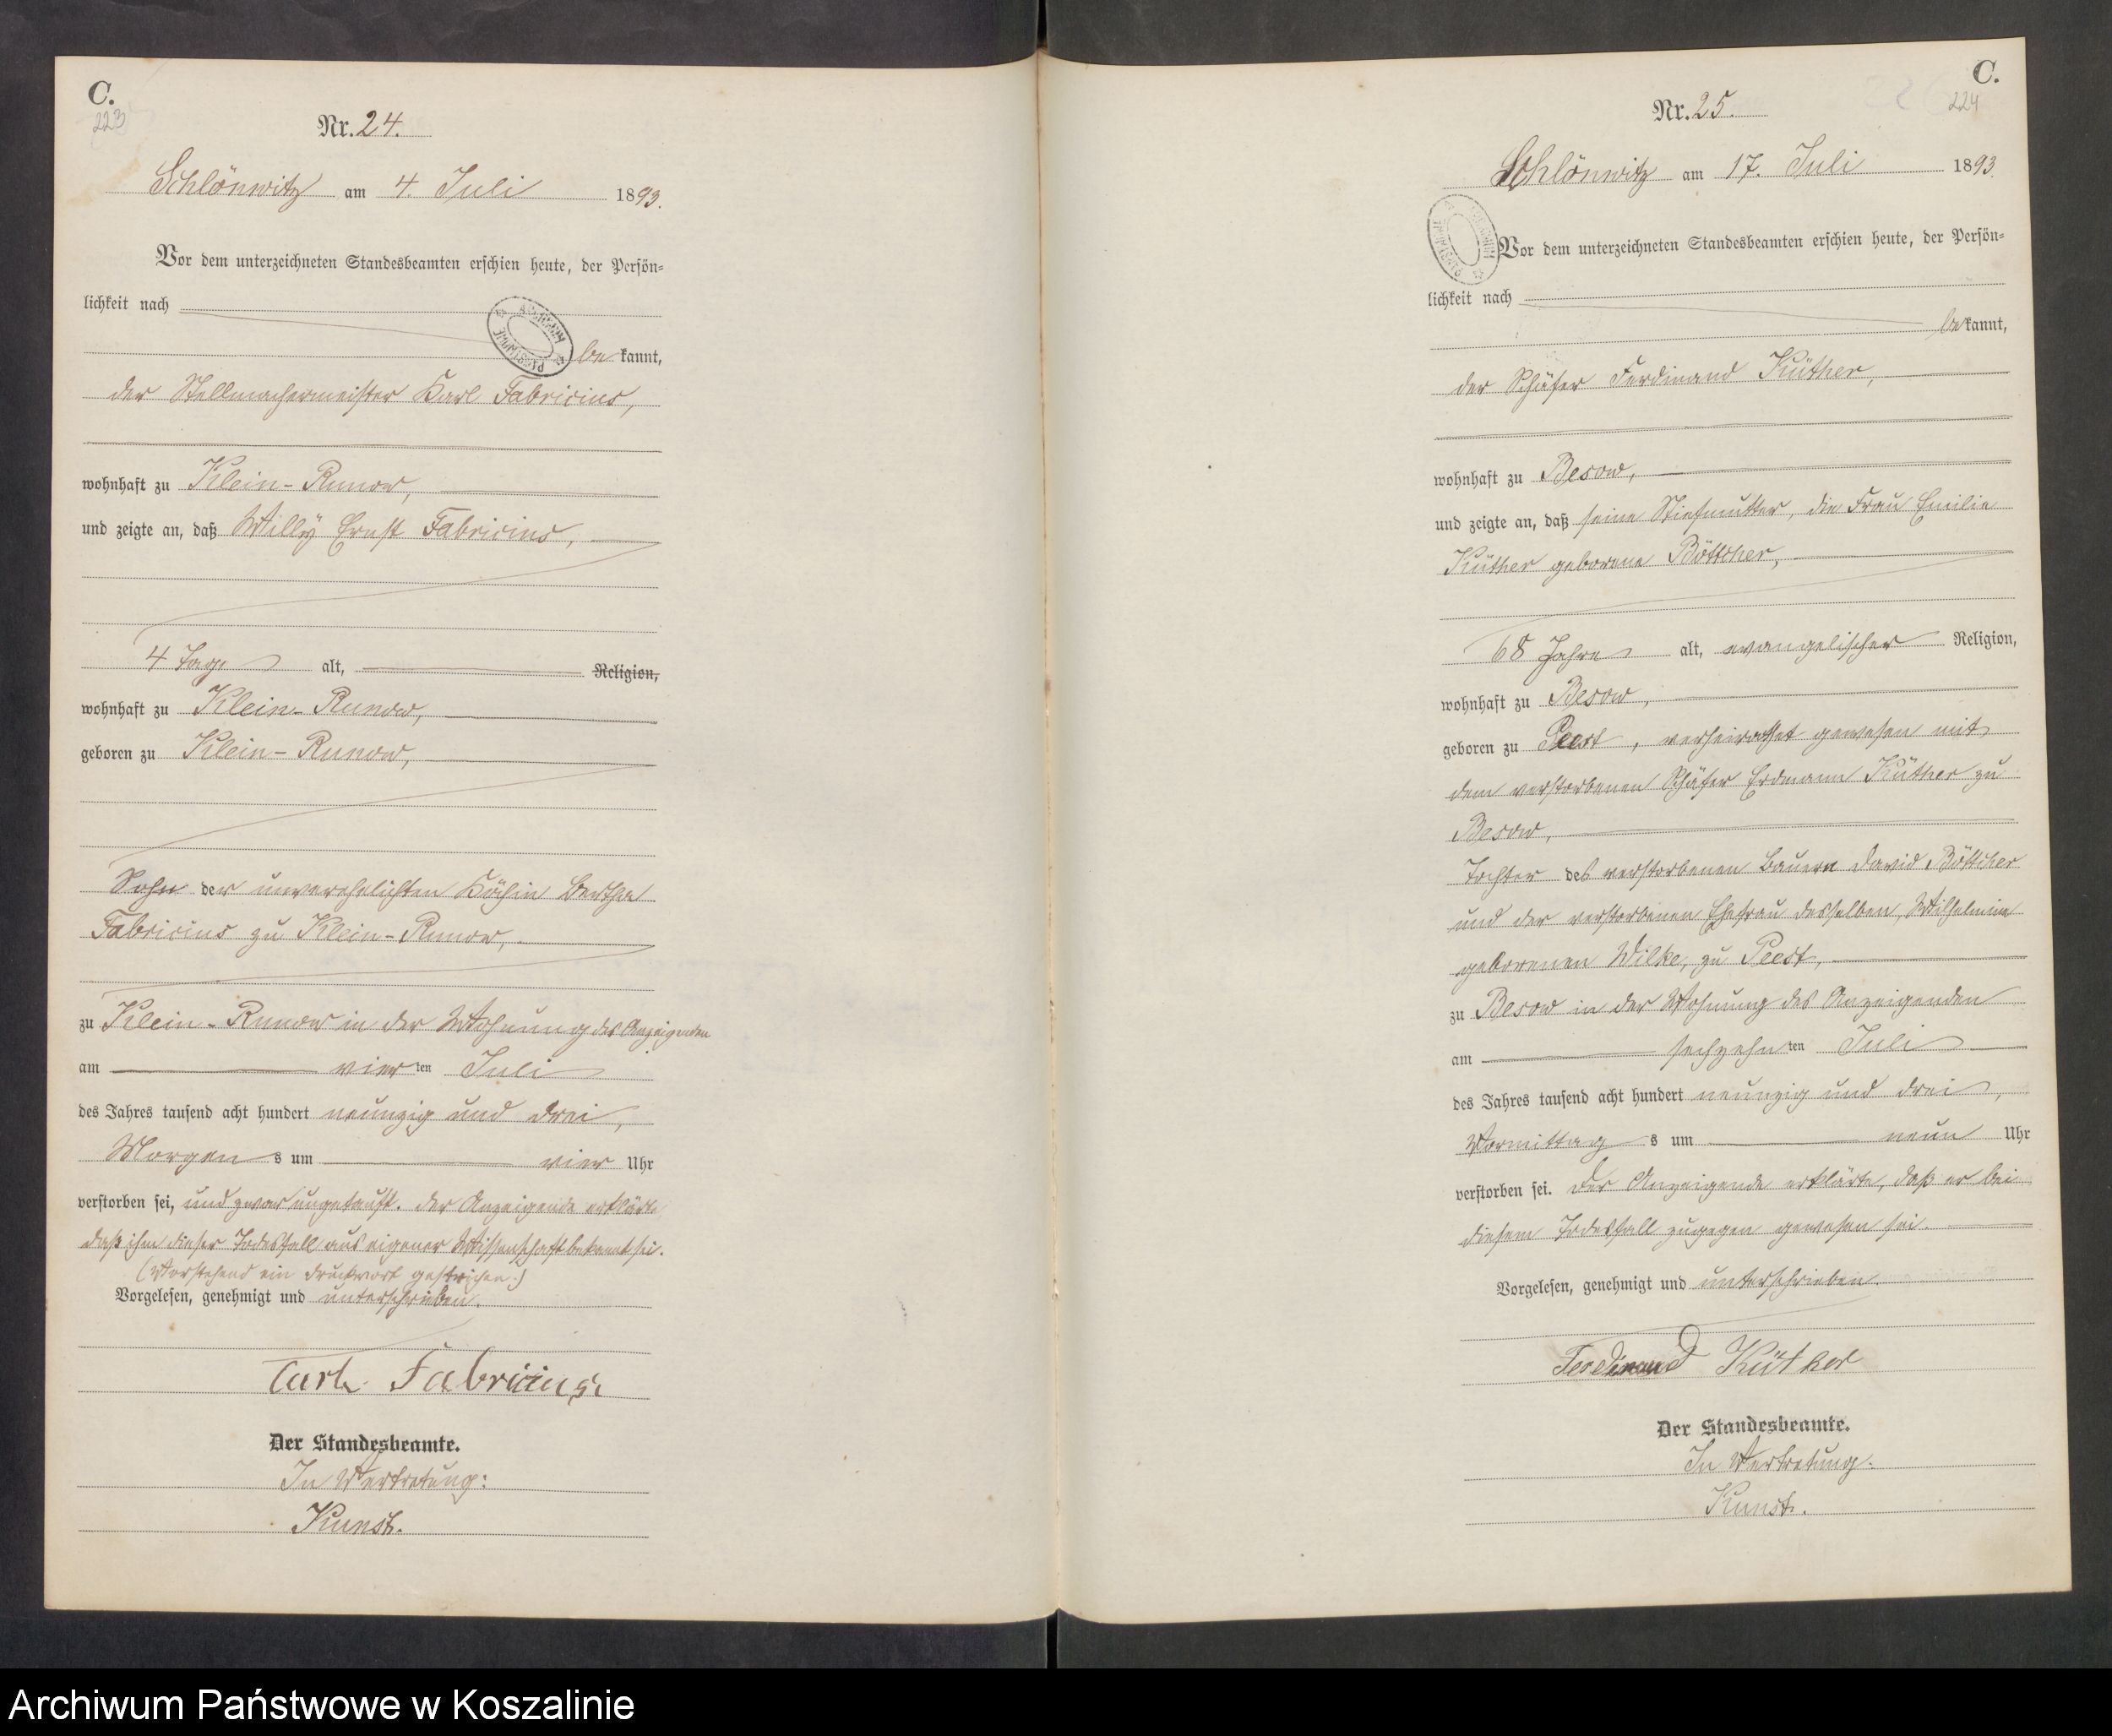 C.
223
Nr. 24.
Schlönwitz am 4. Juli 1893.
Vor dem unterzeichneten Standesbeamten erschien heute, der Persön-
lichkeit nach
be kannt,
der Stellmachermeister Karl Fabricius,
wohnhaft zu Klein-Runow,
und zeigte an, daß Willÿ Ernst Fabricius,
4 Tage alt, Religion,
wohnhaft zu Klein-Runow,
geboren zu Klein-Runow,
Sohn der unverehelichten Köchin Bertha
Fabricius zu Klein-Runow,
zu Klein-Runow in der Wohnung des Anzeigenden
am vier ten Juli
des Jahres tausend acht hundert neunzig und drei,
Morgen s um vier Uhr
verstorben sei, und zwar ungetauft. Der Anzeigende erklärte
daß ihm dieser Todesfall aus eigener Wissenschaft bekannt sei.
(Vorstehend ein Druckwort gestrichen.)
Vorgelesen, genehmigt und unterschrieben.
Carl Fabricius
Der Standesbeamte.
In Vertretung:
Kunst.
C.
224
Nr. 25.
Schlönwitz am 17. Juli 1893.
Vor dem unterzeichneten Standesbeamten erschien heute, der Persön-
lichkeit nach
be kannt,
der Schäfer Ferdinand Küther,
wohnhaft zu Besow,
und zeigte an, daß seine Stiefmutter, die Frau Emilie
Küther geborene Böttcher,
68 Jahre alt, evangelischer Religion,
wohnhaft zu Besow,
geboren zu Peest, verheirathet gewesen mit
dem verstorbenen Schäfer Erdmann Küther zu
Besow,
Tochter des verstorbenen Bauern David Böttcher
und der verstorbenen Ehefrau desselben, Wilhelmine
geborenen Wilke, zu Peest,
zu Besow in der Wohnung des Anzeigenden
am sechzehn ten Juli
des Jahres tausend acht hundert neunzig und drei,
Vormittag s um neun Uhr
verstorben sei. Der Anzeigende erklärte, daß er bei
diesem Todesfall zugegen gewesen sei.
Vorgelesen, genehmigt und unterschrieben.
Ferdinand Küther
Der Standesbeamte.
In Vertretung.
Kunst.
Archiwum Państwowe w Koszalinie